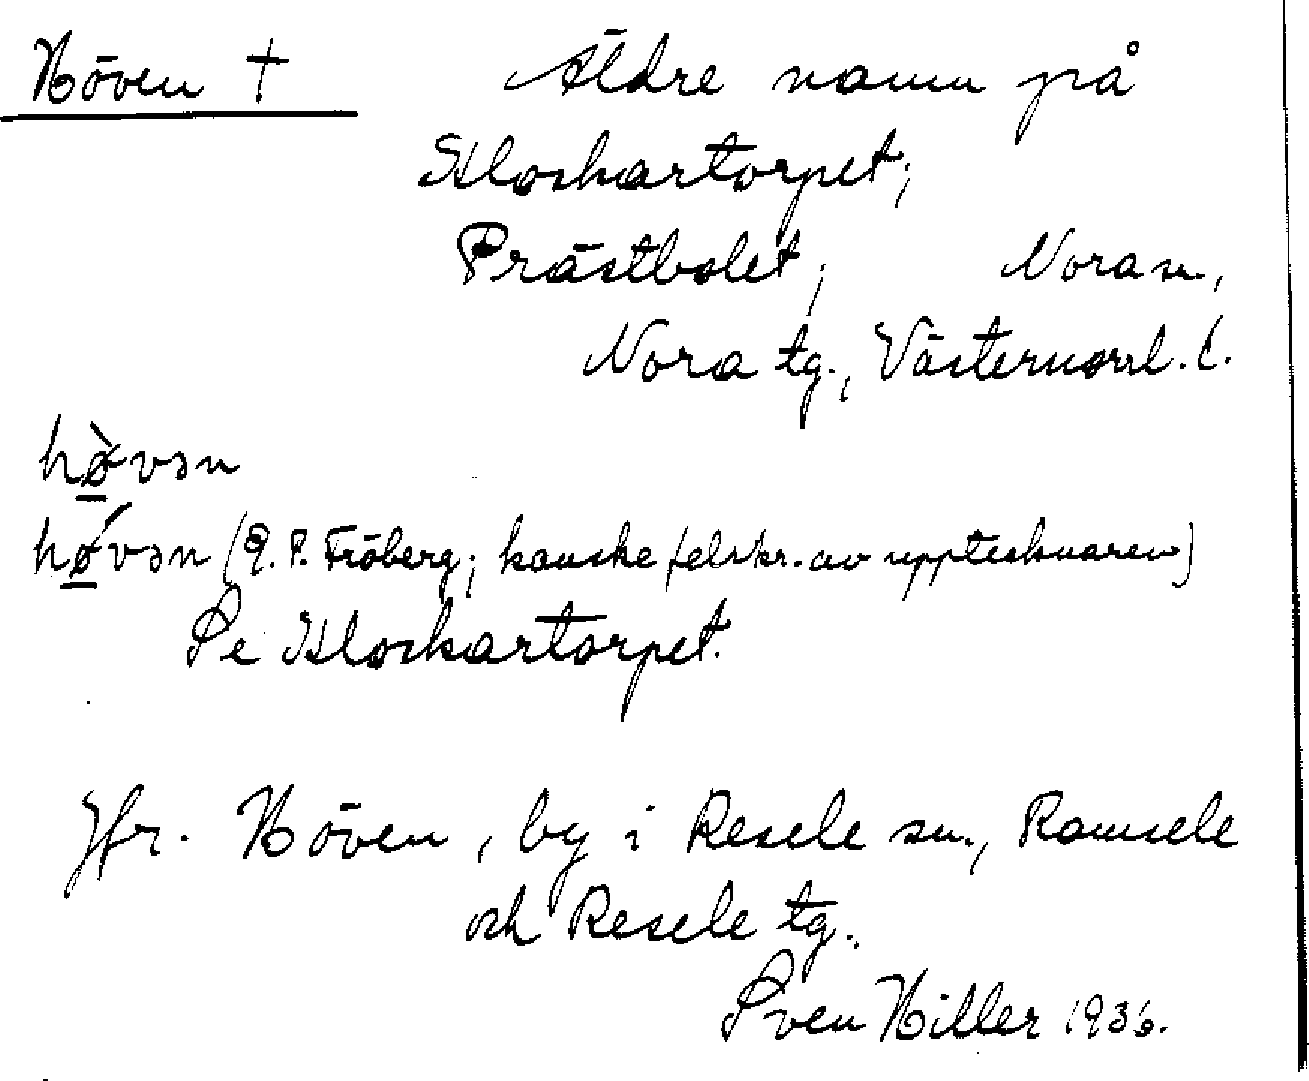 Höven †
Äldre namn på
Klockartorpet,
Prästbolet, Nora sn.,
Nora tg., Västernorrl. l.
hø̱̀vən
hǿ̱vən (P. Fröberg; kanske felskr. av upptecknaren)
Se Klockartorpet.
Jfr. Höven, by i Resele sn., Ramsele
och Resele tg.
Sven Hiller 1936.